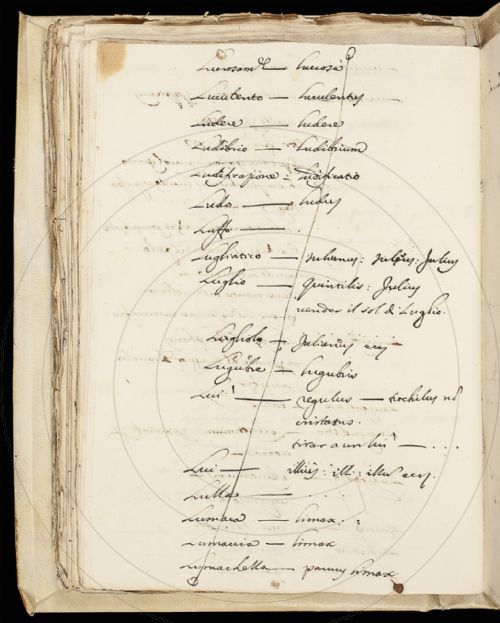 Lucrosam.te — lucrosè
Luculento — luculentus
Ludere — ludere
Ludibrio — ludibrium
Ludificazione = ludificatio
Ludo — ludus
Luffo —
Lugliatico — Julianus:
Luglio — Quintilis: Julius
vender il sol di Luglio.
Lugliolo —
Lugubre — lugubris
Lui — regulus — trochilus
tirar a un lui — . . . .
Lui — illius: illi: illu
Lulla — . . .
Lumaca — limax :
Lumaccia — limax
Lumachella — parvus limax